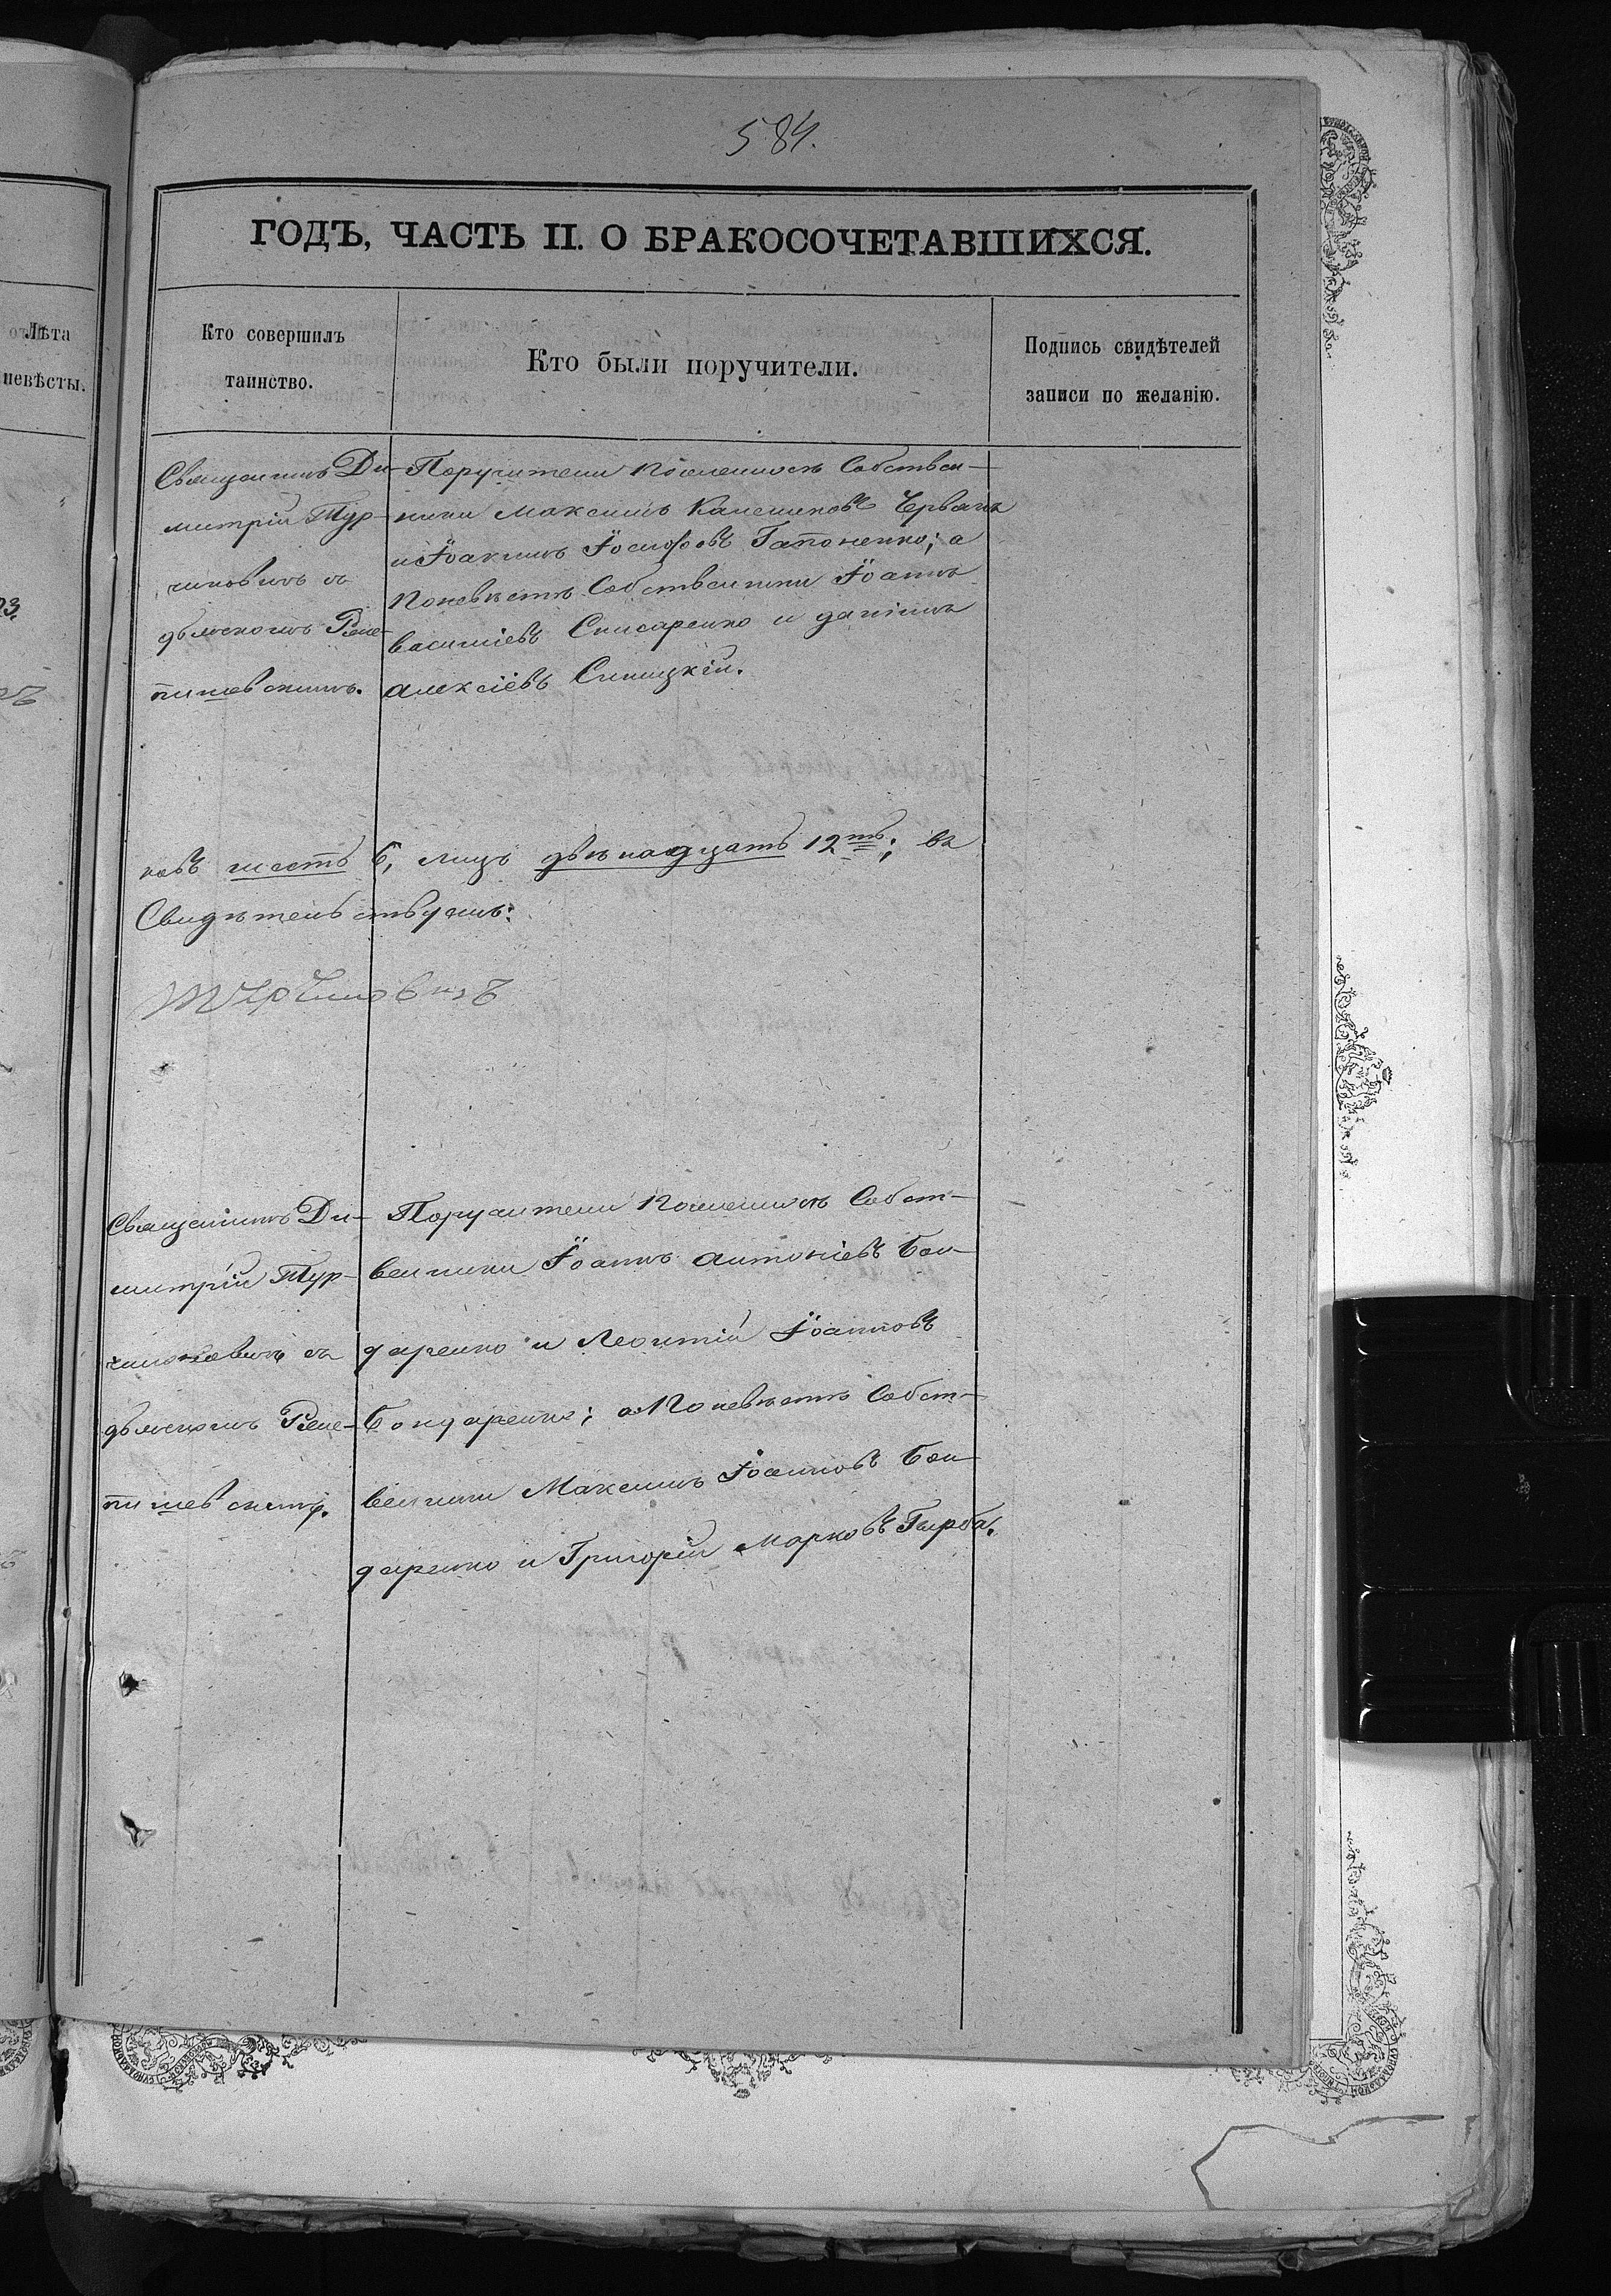 584.
ГОДЪ, ЧАСТЬ II. О БРАКОСОЧЕТАВШИХСЯ.
Лѣта
невѣсты.
Кто совершилъ
таинство.
Кто были поручители.
Подпись свидѣтелей
записи по желанію.
Священникъ Ди-
митрій Тур-
чиновичъ съ
дьячкомъ Рѣпе-
тиловскимъ.
Поручители по женихѣ Собствен-
ники Максимъ Червакъ
и Іоакимъ Іосифовъ Гапоненко; а
по невѣстѣ Собственники Іоаннъ
Василіевъ Снисаренко и Даніилъ
Алексіевъ Синицкій.
ковъ шесть 6, лицъ двѣнадцать 12ть; въ
Свидѣтельствуемъ:
Турчиновичъ
Священникъ Ди-
митрій Тур-
чиновичъ съ
дьячкомъ Рѣпе-
Поручители по женихѣ Собст-
венники Іоаннъ Антоніевъ Бон-
даренко и Леонтій Іоанновъ
Бондаренко; а по невѣстѣ Собст-
венники Максимъ Іоанновъ Бон-
даренко и Григорій Марковъ Гырба.